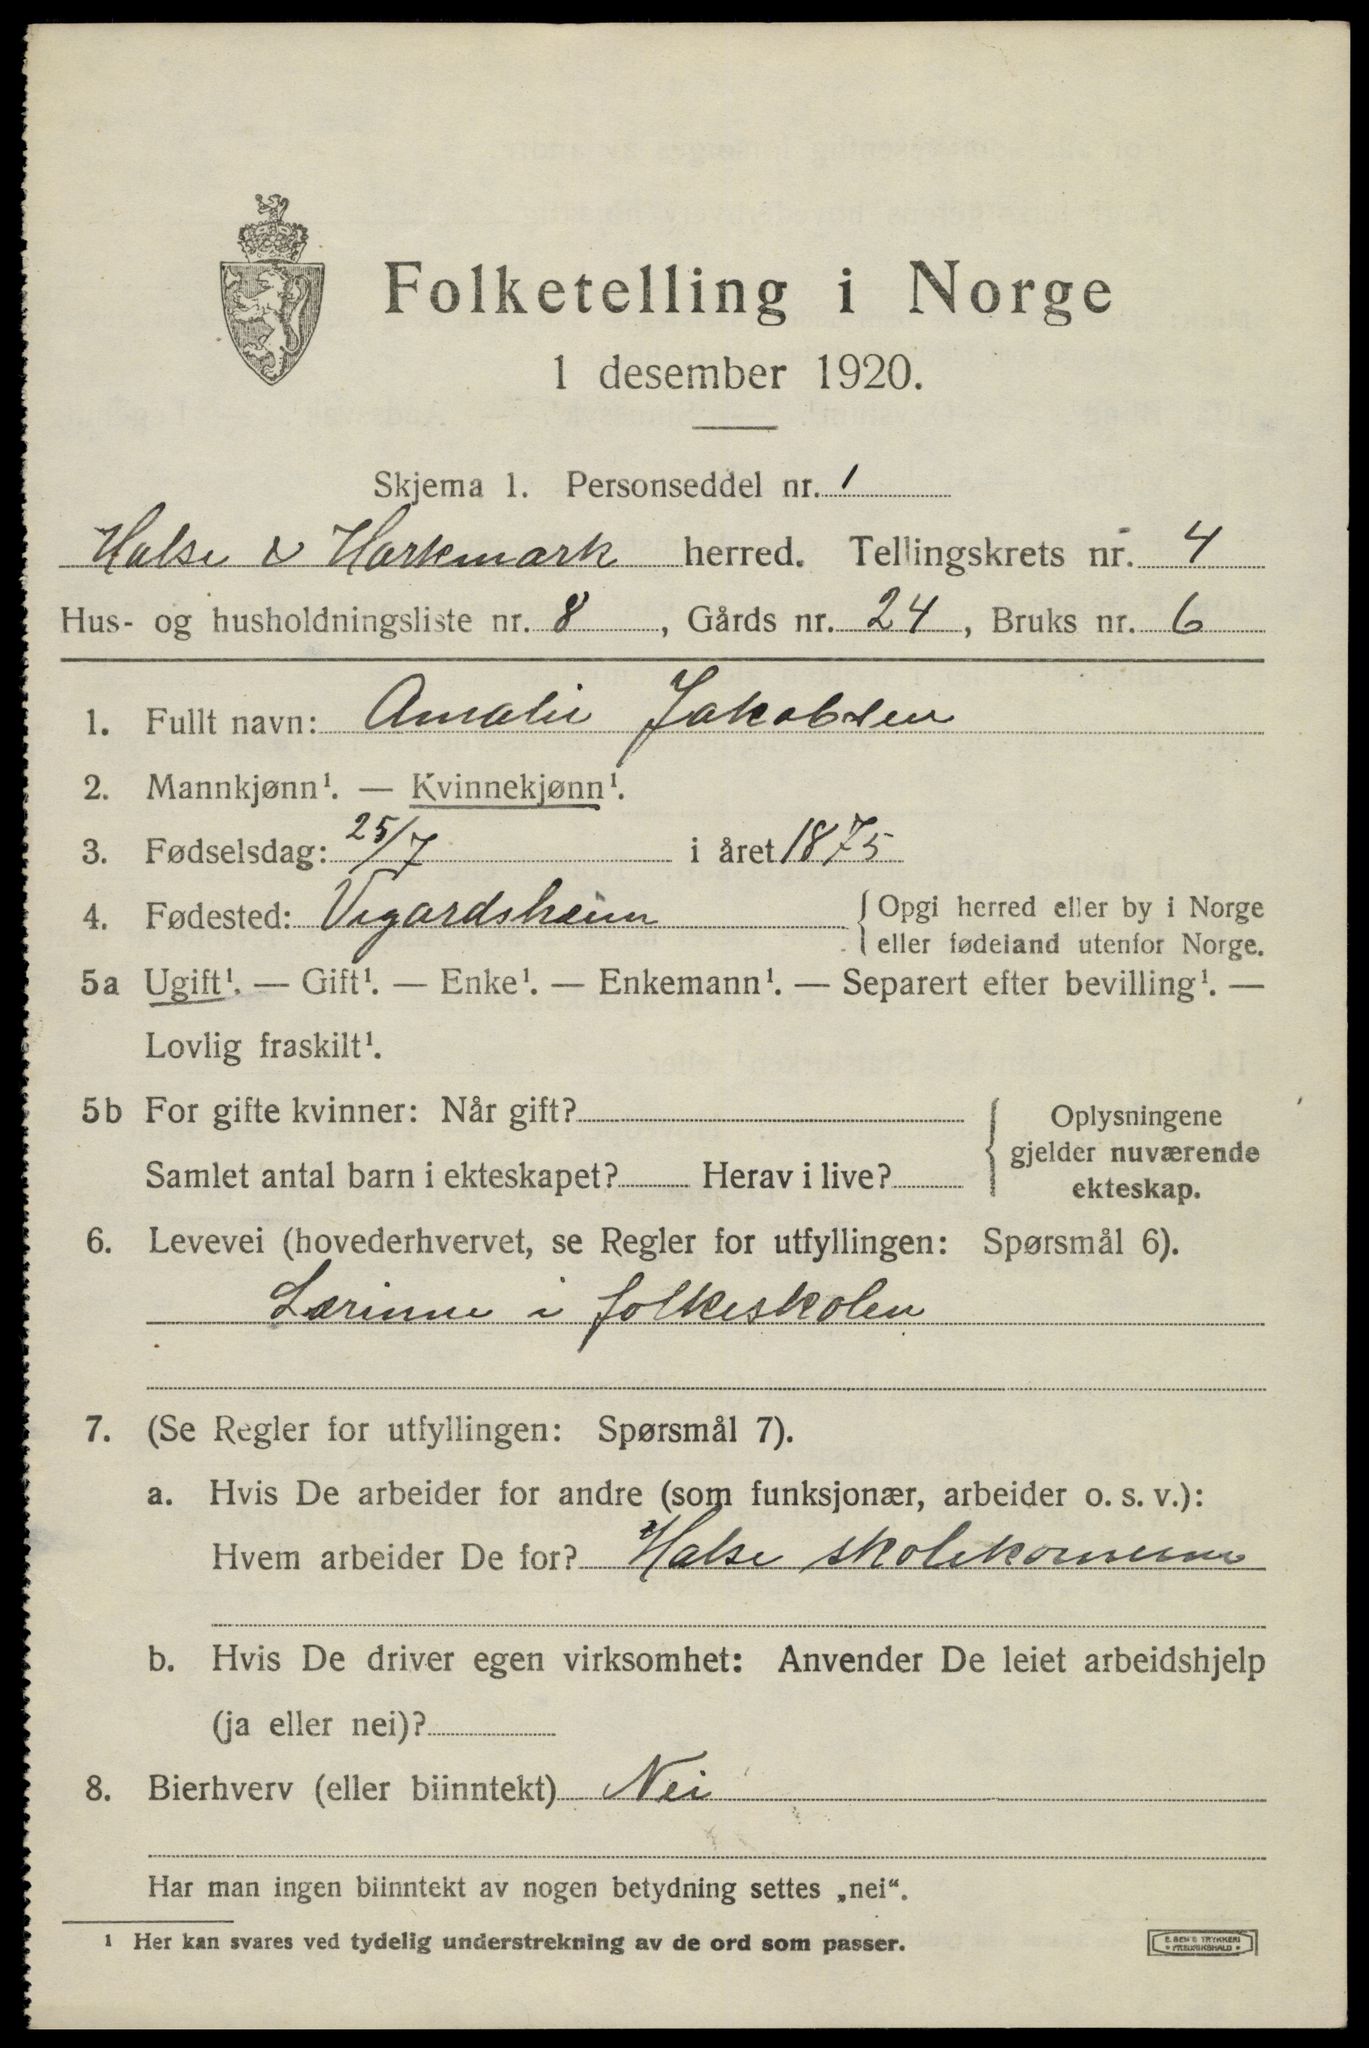 Folketelling i Norge
1 desember 1920.
Skjema 1. Personseddel nr. 1
Halse & Harkmark herred. Tellingskrets nr. 4
Hus- og husholdningsliste nr. 8, Gårds nr. 24, Bruks nr. 6
1. Fullt navn: Amalie Jakobsen
2. Mannkjønn¹. — Kvinnekjønn¹.
3. Fødselsdag: 25/7 i året 1875
4. Fødested: Vegardsheim {Opgi herred eller by i Norge
eller fødeland utenfor Norge.
5a Ugift¹. — Gift¹. — Enke¹. — Enkemann¹. — Separert efter bevilling¹. —
Lovlig fraskilt¹.
5b For gifte kvinner: Når gift?
Samlet antal barn i ekteskapet? Herav i live?
{Oplysningene
gjelder nuværende
ekteskap.
6. Levevei (hovederhvervet, se Regler for utfyllingen: Spørsmål 6).
Lærinne i folkeskolen
7. (Se Regler for utfyllingen: Spørsmål 7).
a. Hvis De arbeider for andre (som funksjonær, arbeider o. s. v.):
Hvem arbeider De for? Halse skolekomune
b. Hvis De driver egen virksomhet: Anvender De leiet arbeidshjelp
(ja eller nei)?
8. Bierhverv (eller biinntekt) Nei
Har man ingen biinntekt av nogen betydning settes „nei“.
¹ Her kan svares ved tydelig understrekning av de ord som passer.
E. SEM'S TRYKKERI
* FREDRIKSHALD *